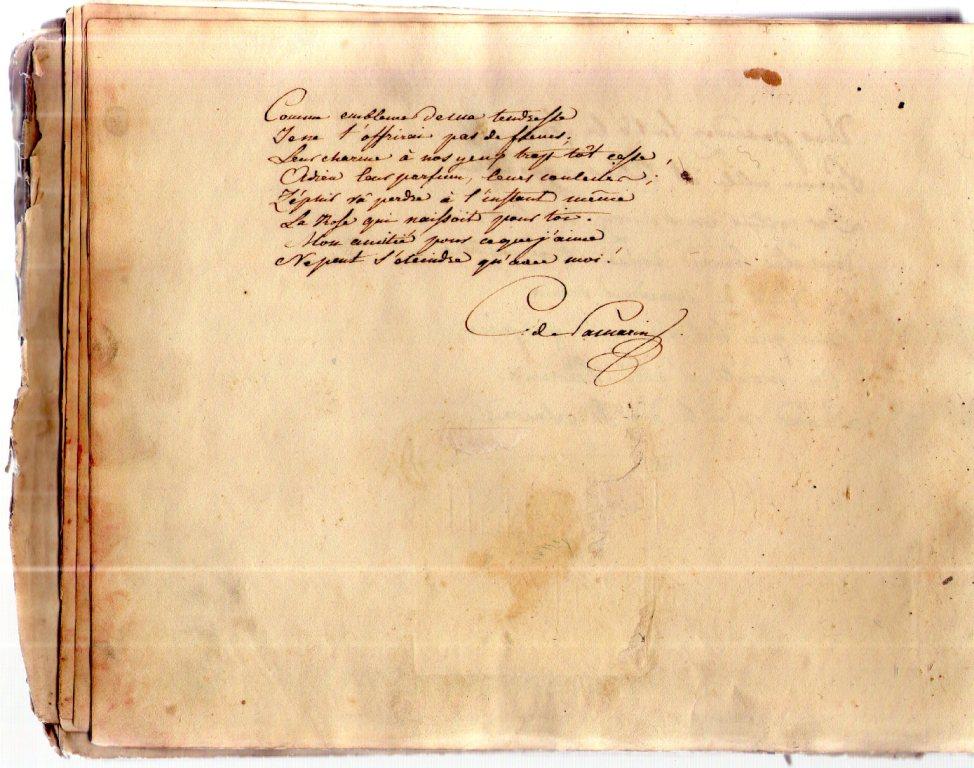 Comme emblême de ma tendresse
Je ne t'offrirai pas de fleurs;
Leur charme à nos yeux trop tôt cesse,
Adieu leur parfum, leurs couleurs;
Zéphir va perdre à l'instant même
La Rose qui naissoit pour toi.
Mon amitié pour ce que j'aime
Ne peut s'éteindre qu'avec moi.
C. de